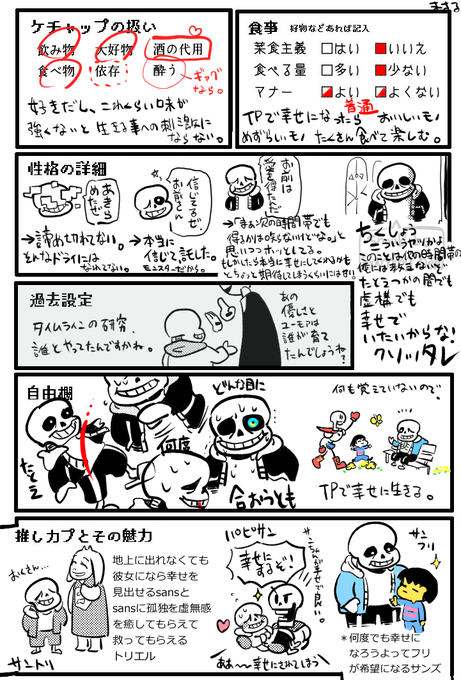 まする
ケチャップの扱い
飲み物 大好物 酒の代用
食べ物 依存 酔う
ギャグ
なら。
好きだし、これくらい味が
強くないと生きる事への刺激に
ならない。
食事 好物などあれば記入
菜食主義 はい いいえ
食べる量 多い 少ない
普通
マナー よい よくない
TPで幸せになったら おいしいモノ
めずらしいモノ たくさん食べて楽しむ。
性格の詳細
あきら
めたぜ。
→諦め切れてない。
そんなドライには
なれてない。
信じてるぜ。
お前さん
→本当に
信じて託した。
モンスターだから。
お前は
愛を得たんだ
→「まぁ次の時間帯でも
得るかは知らないけどな。」と
思いつつホッとしてる。
もしかしたら本当に幸せにしてくれるかも
とちょっと期待してしまうくらいにはすき!!
ちくしょう
こういうヤツがよ
このことは次の時間帯の
俺には教えないぞ
たとえつかの間でも
虚構でも
幸せで
いたいからな!
クソッタレ
過去設定
タイムラインの研究、
誰とやってたんですかね。
あの
優しさと
ユーモアは
誰が育て
たんでしょうね?
自由欄
たとえ
何度
どんな目に
合おうとも
何も覚えていないので、
TPで幸せに生きる。
推しカプとその魅力
おくさん…
サントリ
地上に出れなくても
彼女になら幸せを
見出せるsansと
sansに孤独を虚無感
を癒してもらえて
救ってもらえる
トリエル
パピサン
幸せに
するぞ!
サンちゃんが幸せで良い。
ああ〜幸せにされてしまう
サンフリ
*何度でも幸せに
なろうよってフリ
が希望になるサンズ